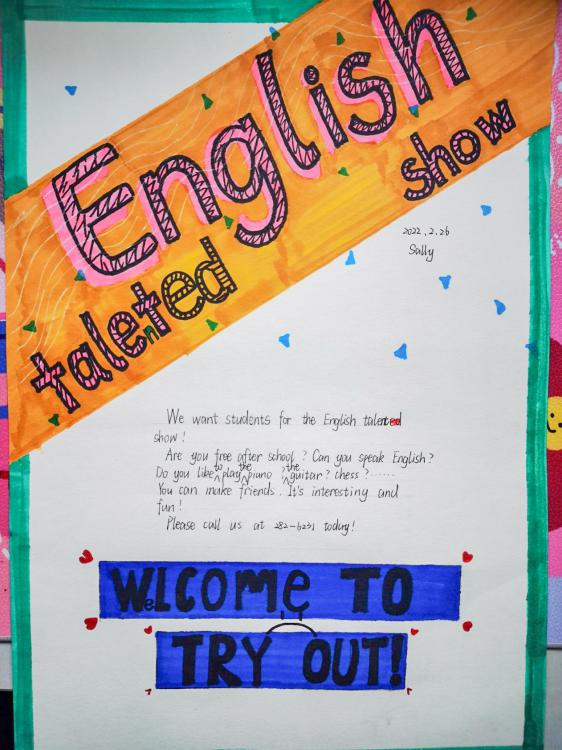 English
talented
show
2022.2.26
Sally
We want students for the English talented
show!
Are you free after school? Can you speak English?
Do you like to play the piano, the guitar? chess?......
You can make friends. It's interesting and
fun!
Please call us at 282-6231 today!
WeLCOMe TO
TRY OUT!